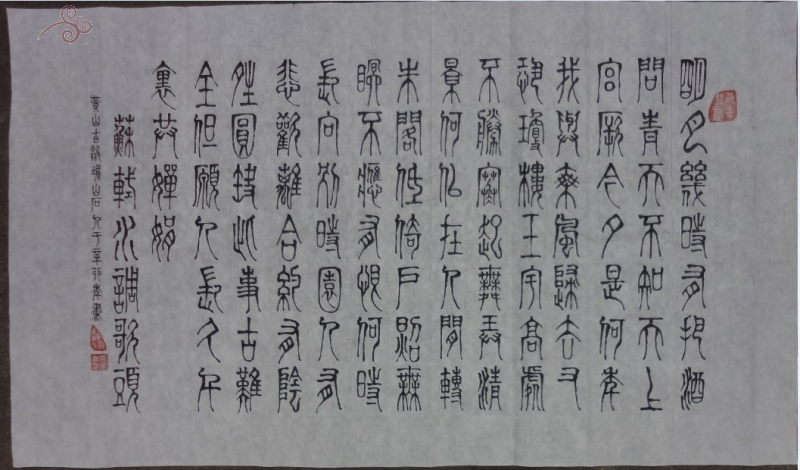 明月幾時有把酒
問青天不知天上
宮闕今夕是何年
我與乘風歸去又
恐瓊樓玉宇高處
不勝寒起舞弄清
景何似在人間轉
朱閣低倚戶照無
眠不應有恨何時
長向別時圓人有
悲歡離合約有陰
晴圓缺此事古難
全但願人長久千
裏共嬋娟
蘇軾水調歌頭
黃山古歙山石人于辛卯年書